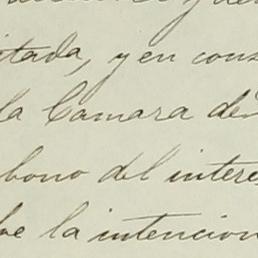 itada, y en cons
la Camara de
bono del interes
be la intencion